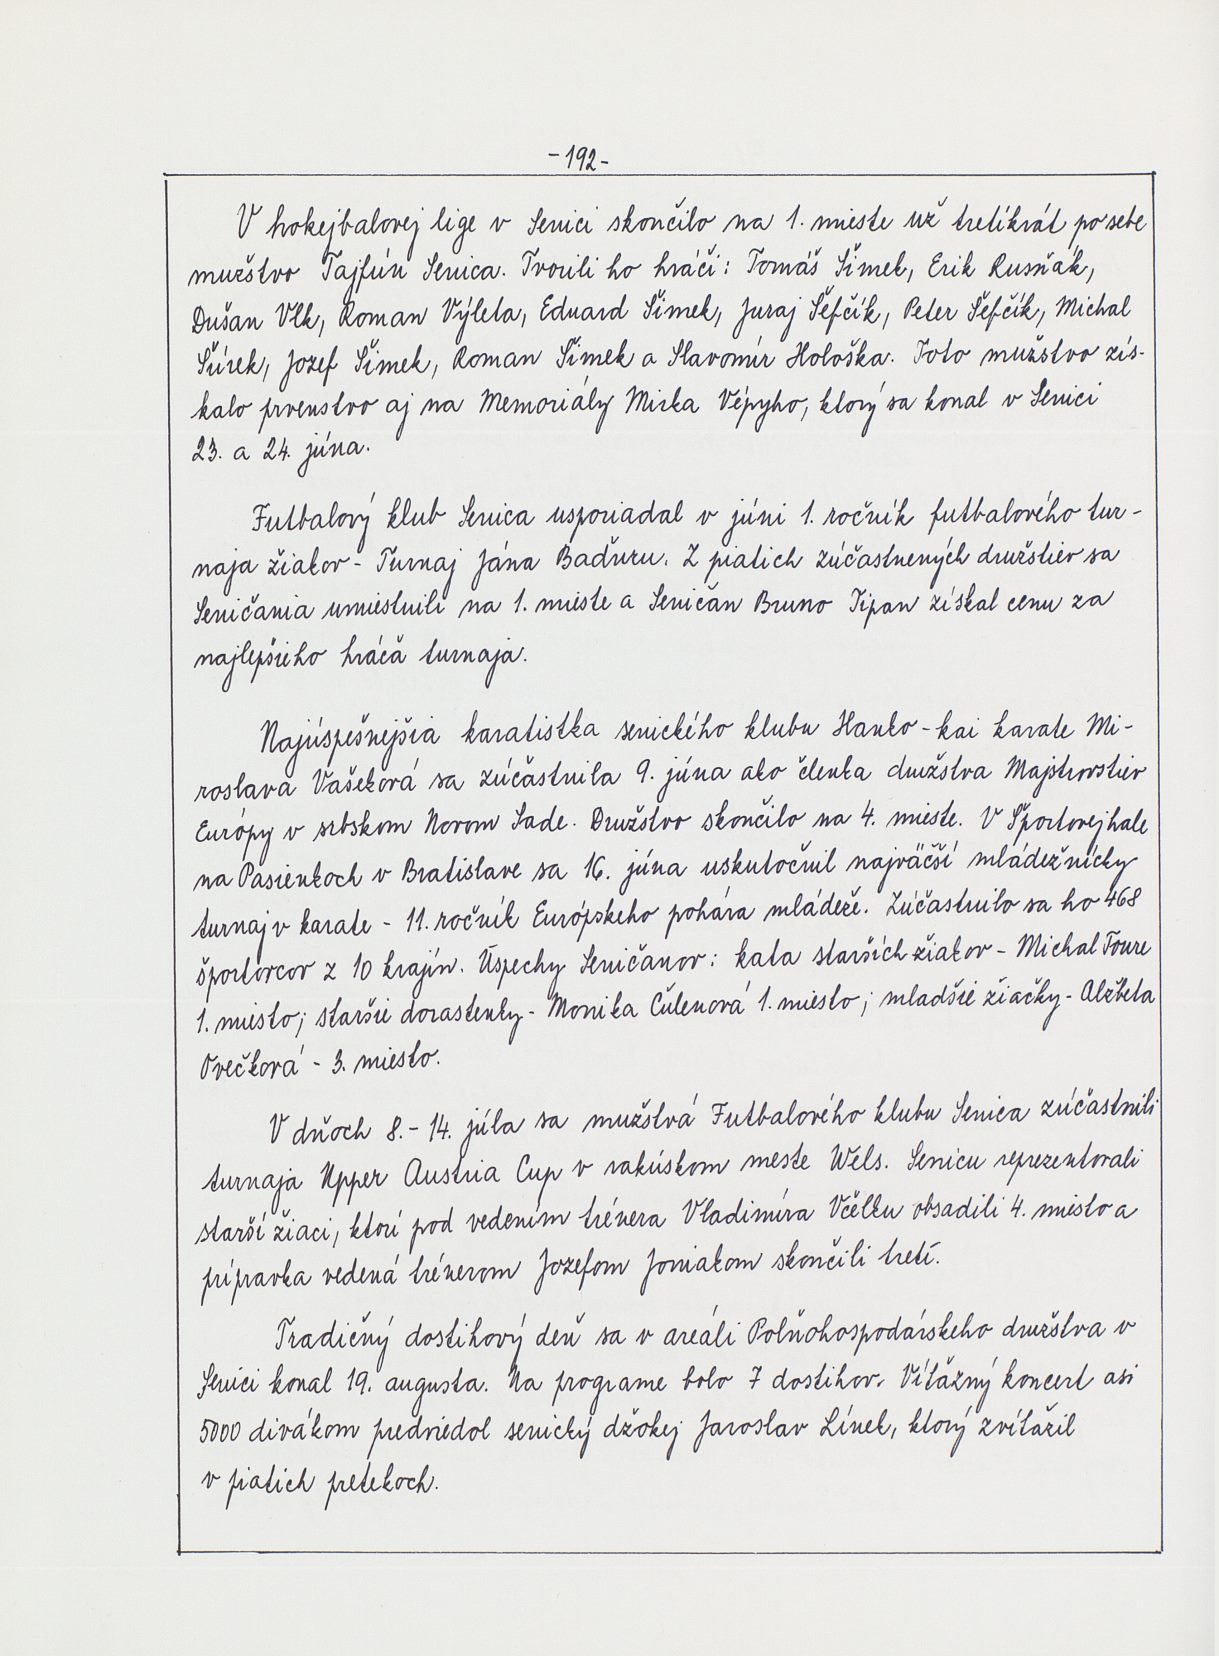 -192-
V hokejbalovej lige v Senici skončilo na 1. mieste už tretíkrát po sebe
mužstvo Tajfún Senica. Tvorili ho hráči: Tomáš Šimek, Erik Rusňák,
Dušan Vlk, Roman Výleta, Eduard Šimek, Juraj Šefčík, Peter Šefčík, Michal
Šúrek, Jozef Šimek, Roman Šimek a Slavomír Hološka. Toto mužstvo zís-
kalo prvenstvo aj na Memoriály Mirka Vépyho, ktorý sa konal v Senici
23. a 24. júna.
Futbalový klub Senica usporiadal v júni 1. ročník futbalového tur-
naja žiakov - Turnaj Jána Baďuru. Z piatich zúčastnených družstiev sa
Seničania umiestnili na 1. mieste a Seničan Bruno Tipan získal cenu za
najlepšieho hráča turnaja.
Najúspešnejšia karatistka senického klubu Hanko-kai karate Mi-
roslava Vašeková sa zúčastnila 9. júna ako členka družstva Majstrovstiev
Európy v srbskom Novom Sade. Družstvo skončilo na 4. mieste. V Športovej hale
na Pasienkoch v Bratislave sa 16. júna uskutočnil najväčší mládežnícky
turnaj v karate - 11. ročník Európskeho pohára mládeže. Zúčastnilo sa ho 468
športovcov z 10 krajín. Úspechy Seničanov: kata starších žiakov - Michal Toure
1. miesto; staršie dorastenky - Monika Čulenová 1. miesto; mladšie žiačky - Alžbeta
Ovečková - 3. miesto.
V dňoch 8.-14. júla sa mužstvá Futbalového klubu Senica zúčastnili
turnaja Upper Austria Cup v rakúskom meste Wels. Senicu reprezentovali
starší žiaci, ktorí pod vedením trénera Vladimíra Včelku obsadili 4. miesto a
prípravka vedená trénerom Jozefom Joniakom skončili tretí.
Tradičný dostihový deň sa v areáli Poľňohospodárskeho družstva v
Senici konal 19. augusta. Na programe bolo 7 dostihov. Víťazný koncert asi
5000 divákom predviedol senický džokej Jaroslav Línek, ktorý zvíťazil
v piatich pretekoch.